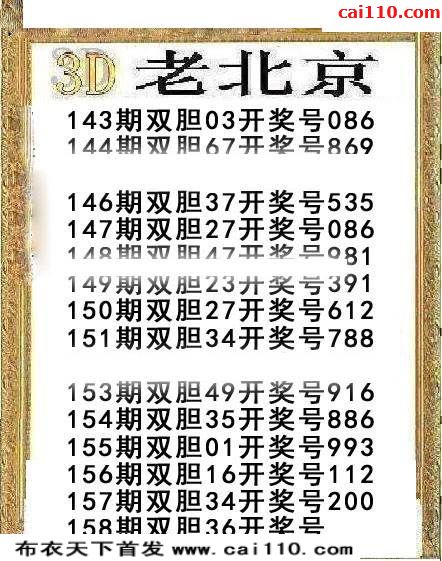 cai110.com
3D 老北京
143期双胆03开奖号086
144期双胆67开奖号869
146期双胆37开奖号535
147期双胆27开奖号086
148期双胆47开奖号981
149期双胆23开奖号391
150期双胆27开奖号612
151期双胆34开奖号788
153期双胆49开奖号916
154期双胆35开奖号886
155期双胆01开奖号993
156期双胆16开奖号112
157期双胆34开奖号200
158期双胆36开奖号
布衣天下首发 www.cai110.com